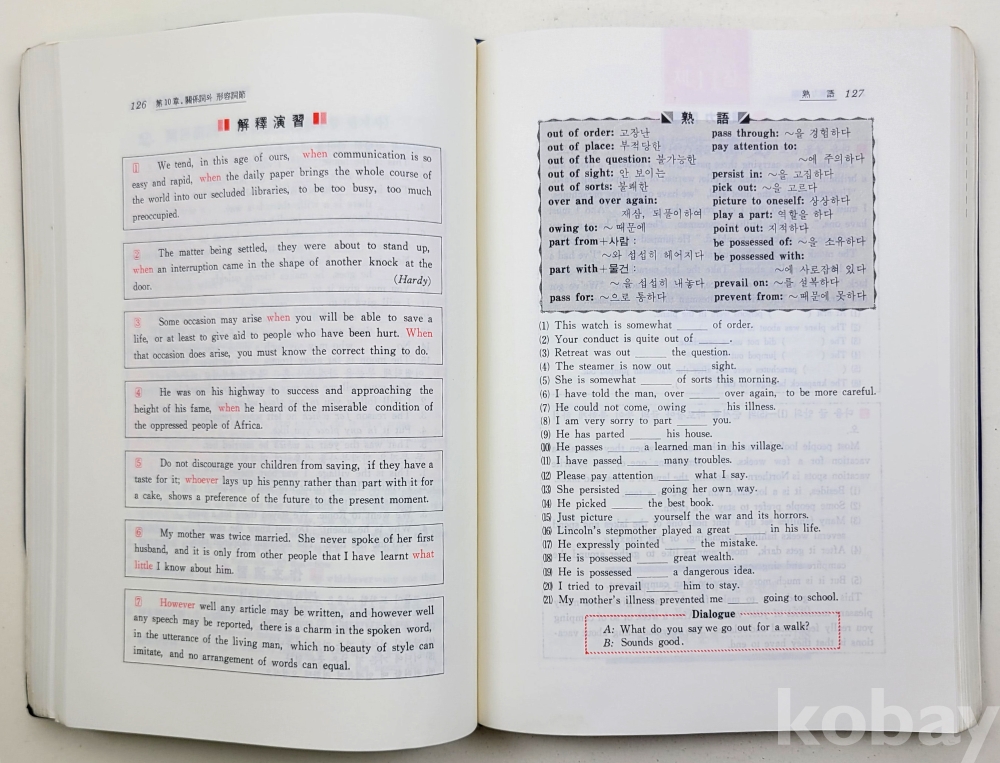 126 第10章. 關係詞와 形容詞節
解釋演習
① We tend, in this age of ours, when communication is so
easy and rapid, when the daily paper brings the whole course of
the world into our secluded libraries, to be too busy, too much
preoccupied.
② The matter being settled, they were about to stand up,
when an interruption came in the shape of another knock at the
door. (Hardy)
③ Some occasion may arise when you will be able to save a
life, or at least to give aid to people who have been hurt. When
that occasion does arise, you must know the correct thing to do.
④ He was on his highway to success and approaching the
height of his fame, when he heard of the miserable condition of
the oppressed people of Africa.
⑤ Do not discourage your children from saving, if they have a
taste for it; whoever lays up his penny rather than part with it for
a cake, shows a preference of the future to the present moment.
⑥ My mother was twice married. She never spoke of her first
husband, and it is only from other people that I have learnt what
little I know about him.
⑦ However well any article may be written, and however well
any speech may be reported, there is a charm in the spoken word,
in the utterance of the living man, which no beauty of style can
imitate, and no arrangement of words can equal.
熟 語 127
熟 語
out of order: 고장난
out of place: 부적당한
out of the question: 불가능한
out of sight: 안 보이는
out of sorts: 불쾌한
over and over again:
재삼, 되풀이하여
owing to: ～때문에
part from+사람:
～와 섭섭히 헤어지다
part with+물건:
～을 섭섭히 내놓다
pass for: ～으로 통하다
pass through: ～을 경험하다
pay attention to:
～에 주의하다
persist in: ～을 고집하다
pick out: ～을 고르다
picture to oneself: 상상하다
play a part: 역할을 하다
point out: 지적하다
be possessed of: ～을 소유하다
be possessed with:
～에 사로잡혀 있다
prevail on: ～를 설복하다
prevent from: ～때문에 못하다
(1) This watch is somewhat _____ of order.
(2) Your conduct is quite out of _____.
(3) Retreat was out _____ the question.
(4) The steamer is now out _____ sight.
(5) She is somewhat _____ of sorts this morning.
(6) I have told the man, over _____ over again, to be more careful.
(7) He could not come, owing _____ his illness.
(8) I am very sorry to part _____ you.
(9) He has parted _____ his house.
(10) He passes _____ a learned man in his village.
(11) I have passed _____ many troubles.
(12) Please pay attention _____ what I say.
(13) She persisted _____ going her own way.
(14) He picked _____ the best book.
(15) Just picture _____ yourself the war and its horrors.
(16) Lincoln's stepmother played a great _____ in his life.
(17) He expressly pointed _____ the mistake.
(18) He is possessed _____ great wealth.
(19) He is possessed _____ a dangerous idea.
(20) I tried to prevail _____ him to stay.
(21) My mother's illness prevented me _____ going to school.
Dialogue
A: What do you say we go out for a walk?
B: Sounds good.
kobay